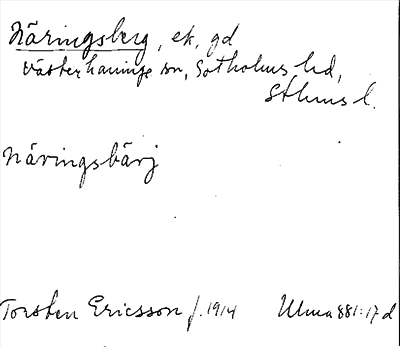 Näringsberg, ek, gd
Västerhaninge sn, Sotholms hd,
Sthms l.
Näringsbärj
Torsten Ericsson f. 1914 Ulma 881:17 d